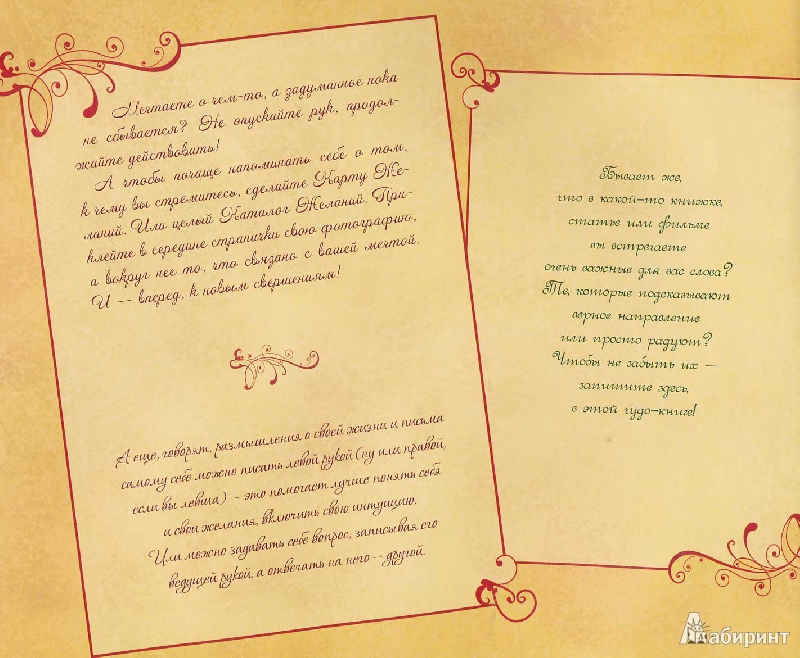 Мечтаете о чем-то, а задуманное пока
не сбывается? Не опускайте рук, продол-
жайте действовать!
А чтобы почаще напоминать себе о том,
к чему вы стремитесь, сделайте Карту Же-
ланий. Или целый Каталог Желаний. При-
клейте в середине страничка свою фотографию,
а вокруг нее то, что связано с вашей мечтой.
И -- вперед, к новым свершениям!
А еще, говорят, размышления о своей жизни и письма
самому себе можно писать левой рукой (ну или правой,
если вы левша) -- это помогает лучше понять себя
и свои желания, включить свою интуицию.
Или можно задавать себе вопрос, записывая его
ведущей рукой, а отвечать на него -- другой.
Бывает же,
что в какой-то книжке,
статье или фильме
вы встречаете
очень важные для вас слова?
Те, которые подсказывают
верное направление
или просто радуют?
Чтобы не забыть их –
запишите здесь,
в этой чудо-книге!
Лабиринт